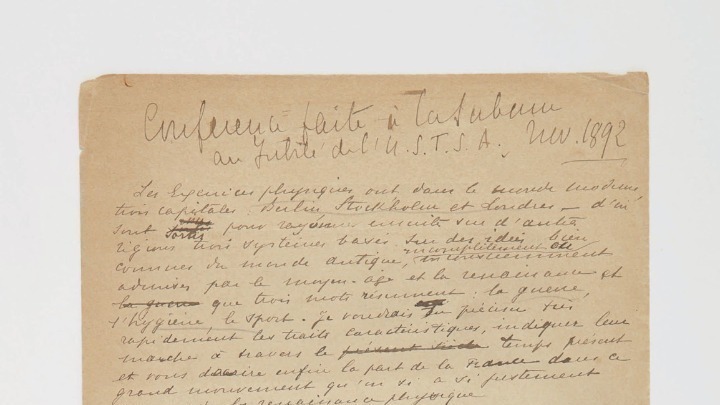 Conférence faite à la Sorbonne
au Jubilé de l'U.S.F.S.A. Nov. 1892
Les Exercices physiques ont dans le monde moderne
trois capitales : Berlin Stockholm et Londres – d'où
sont sortis pour rayonner ensuite sur d'autres
régions trois systèmes basés sur des idées bien
connues du monde antique, incomplètement et inconsciemment
admises par le moyen-âge et la renaissance et
la guerre que trois mots résument : la guerre,
l'hygiène, le sport. Je voudrais en préciser très
rapidement les traits caractéristiques, indiquer leur
marche à travers le présent siècle temps présent
et vous dire enfin la part de la France dans ce
grand mouvement qu'on a si justement
de la renaissance physique